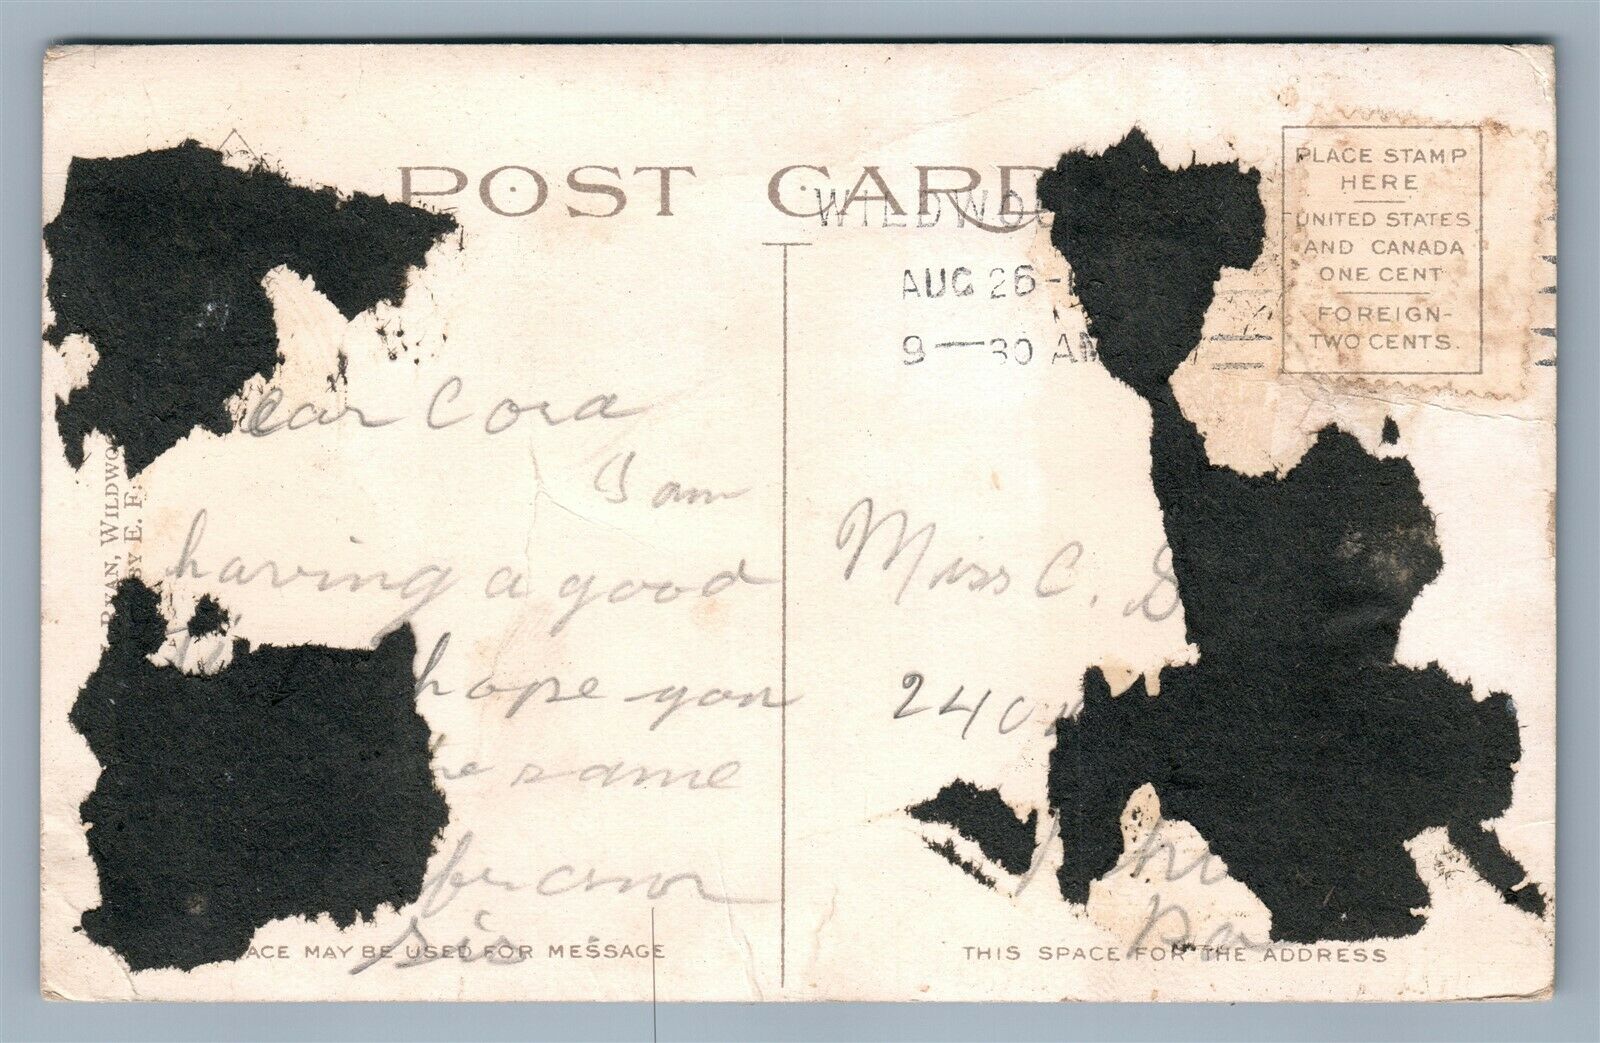 POST CARD
WILDWO
AUG 26-
9-30 AM
PLACE STAMP
HERE
UNITED STATES
AND CANADA
ONE CENT
FOREIGN-
TWO CENTS.
RYAN, WILDWO
BY E. F.
ear Cora
I am
having a good
hope you
the same
from
Sis
Miss C. S
240
Phi
Pa
ACE MAY BE USED FOR MESSAGE
THIS SPACE FOR THE ADDRESS